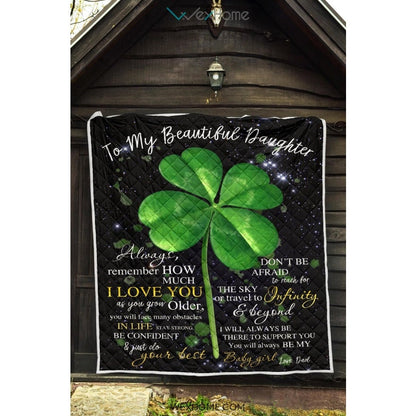 WEXHOME
To My Beautiful Daughter
Always,
remember HOW
MUCH
I LOVE YOU
as you grow Older,
you will face many obstacles
IN LIFE STAY STRONG
BE CONFIDENT
& just do
your best
DON'T BE
AFRAID
to reach for
THE SKY
or travel to Infinity
& beyond
I WILL ALWAYS BE
THERE TO SUPPORT YOU
You will always BE MY
Baby girl Love, Dad
WEXHOME.COM